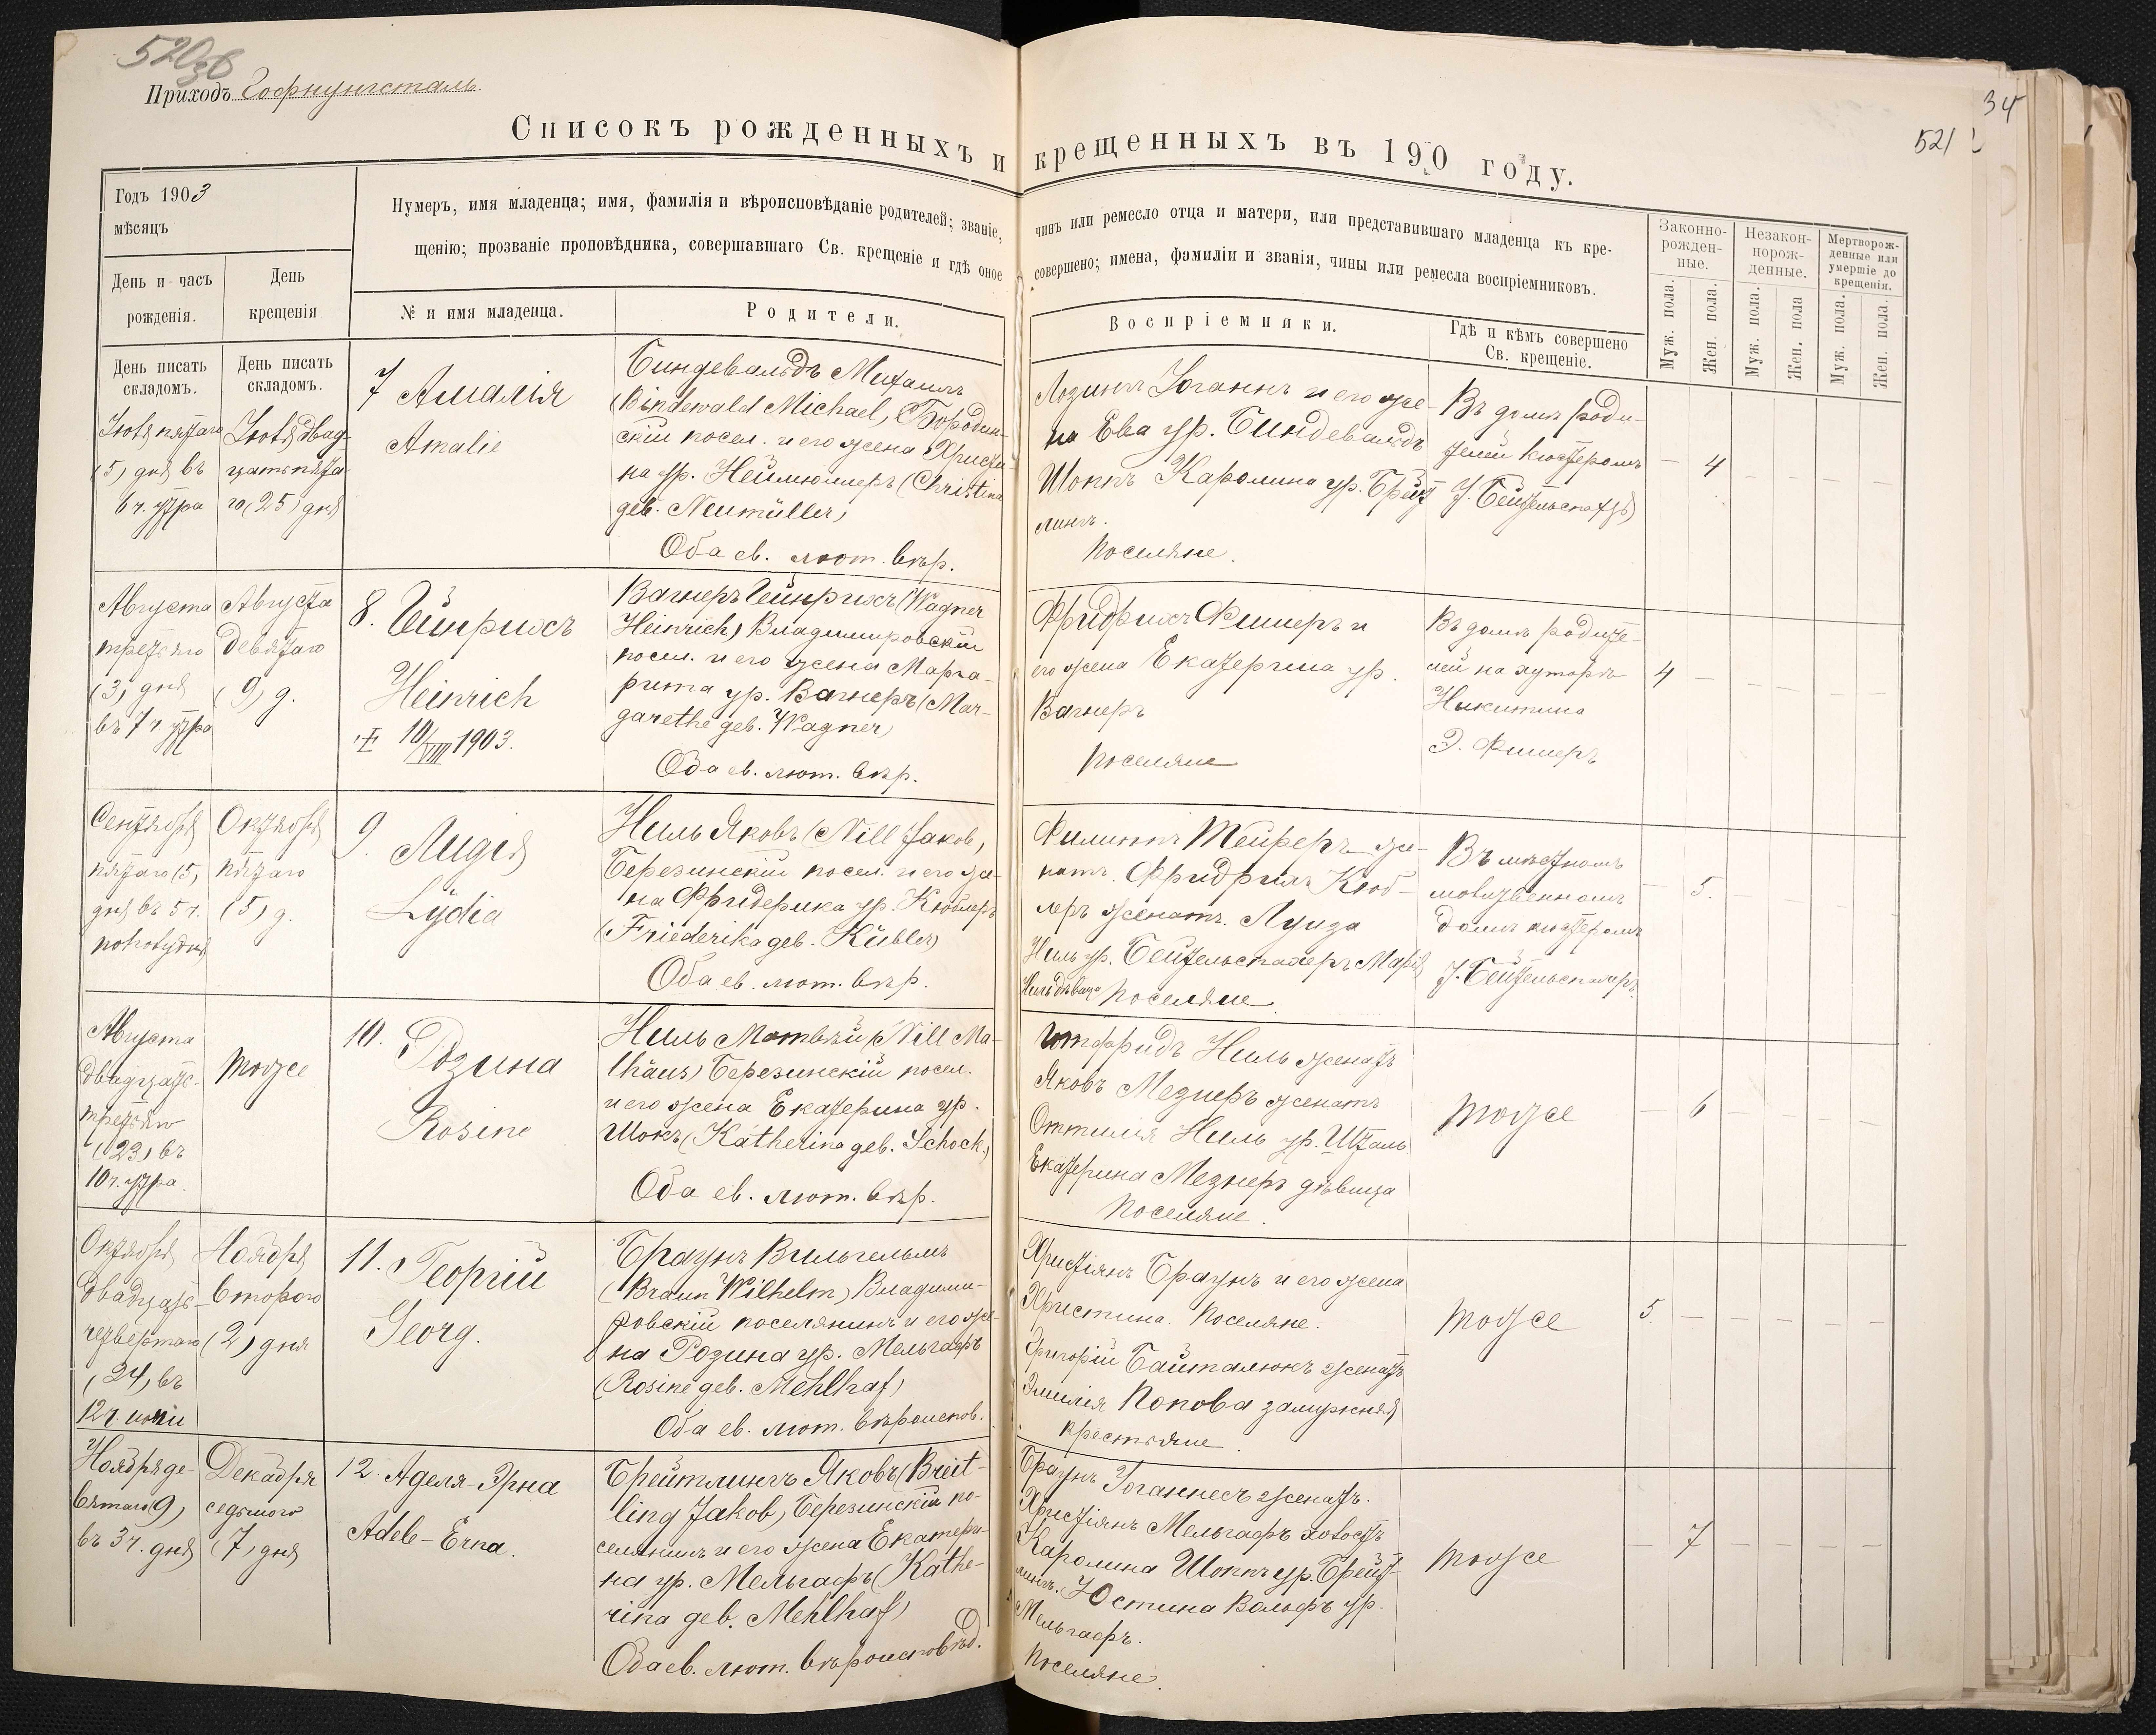 520зв
Приходъ Гофнунгсталь.
34
521
Списокъ рожденныхъ и крещенныхъ въ 190 году.
Годъ 1903
мѣсяцъ
День и часъ рожденія.
День крещенія
Нумеръ, имя младенца; имя, фамилія и вѣроисповѣданіе родителей; званіе, чинъ или ремесло отца и матери, или представившаго младенца къ кре-
щенію; прозваніе проповѣдника, совершавшаго Св. крещеніе и гдѣ оное совершено; имена, фамиліи и званія, чины или ремесла воспріемниковъ.
№ и имя младенца.
Родители.
Воспріемники.
Гдѣ и кѣмъ совершено
Св. крещеніе.
Законно-
рожден-
ные.
Незакон-
норож-
денные.
Мертворож-
денные или
умершіе до
крещенія.
Муж. пола.
Жен. пола.
Муж. пола.
Жен. пола
Муж. пола.
Жен. пола.
День писать
складомъ.
День писать
складомъ.
Іюля пятаго
(5) дня въ
6 ч. утра
Іюля двад-
цатьпята
го (25) дня
7 Амалія
Amalie
Биндевальдъ Михаилъ
(Bindewald Michael) Бородин-
скій посел. и его жена Христи-
на ур. Неймюллеръ (Christina
geb. Neumüller)
Оба ев. лют. вѣр.
Лозингъ Іоганнъ и его же-
на Ева ур. Биндевальдъ
Шоппъ Каролина ур. Брейт
лингъ.
Поселяне.
Въ домѣ роди-
телей кюстеромъ
— 4 — — — —
Августа
третьяго
(3) дня
въ 7 ч. утра
Августа
девятаго
(9) д.
8. Гейнрихъ
Heinrich
10/VIII 1903.
Вагнеръ Гейнрихъ (Wagner
Heinrich) Владимировскій
посел. и его жена Марга-
рита ур. Вагнеръ (Mar-
garethe geb. Wagner)
Оба ев. лют. вѣр.
Фридрихъ Фишеръ и
его жена Екатерина ур.
Вагнеръ
поселяне
Въ домѣ родите-
лей на хуторѣ
Никитино
Э. Фишеръ
4 — — — — —
Сентября
пятаго (5)
дня въ 5 ч.
пополудни
Октября
пятаго
(5) д.
9. Лидія
Lydia
Ниль Яковъ (Nill Jakob),
Березинскій посел. и его же-
на Фридерика ур. Кюблеръ
(Friederika geb. Kübler)
Оба ев. лют. вѣр.
Филиппъ Тейферъ же-
натъ. Фридрихъ Кюб-
леръ женатъ. Луиза
Ниль ур. Бейтельспахеръ Марія
Ниль дѣвица Поселяне.
Въ мѣстномъ
молитвенномъ
домѣ кюстеромъ
І. Бейтельспахеръ.
— 5. — — — —
Августа
двадцать-
третьяго
(23) въ
10 ч. утра.
тоже
10. Розина
Rosine
Ниль Матвѣй (Nill Ma-
thäus) Березинскій посел.
и его жена Екатерина ур.
Шокъ (Katherina geb. Schock.)
Оба ев. лют. вѣр.
Готфридъ Ниль женатъ
Яковъ Мецнеръ женатъ
Оттилія Ниль ур. Шталь
Екатерина Мецнеръ дѣвица
Поселяне.
тоже
— 6 — — — —
Октября
двадцать-
четвертаго
(24) въ
12 ч. ночи
Ноября
второго
(2) дня
11. Георгій
Georg.
Браунъ Вильгельмъ
(Braun Wilhelm) Владими-
ровскій поселянинъ и его же-
на Розина ур. Мельгафъ
(Rosine geb. Mehlhaf)
Оба ев. лют. вѣроисповѣд.
Христіянъ Браунъ и его жена
Христина. Поселяне.
Григорій Байталюкъ женатъ
Эмилія Попова замужняя
крестьяне.
тоже
5. — — — — —
Ноября де-
вятаго (9)
въ 3 ч. дня
Декабря
седьмого
(7) дня
12. Аделя-Эрна
Adele-Erna.
Брейтлингъ Яковъ (Breit-
ling Jakob) Березинскій по-
селянинъ и его жена Екатери-
на ур. Мельгафъ (Kathe-
rina geb. Mehlhaf)
Оба ев. лют. вѣроисповѣд.
Браунъ Іоганнесъ женатъ.
Христіянъ Мельгафъ холостъ
Каролина Шоппъ ур. Брейт-
лингъ. Юстина Вольфъ ур.
Мельгафъ.
Поселяне.
тоже
— 7 — — — —